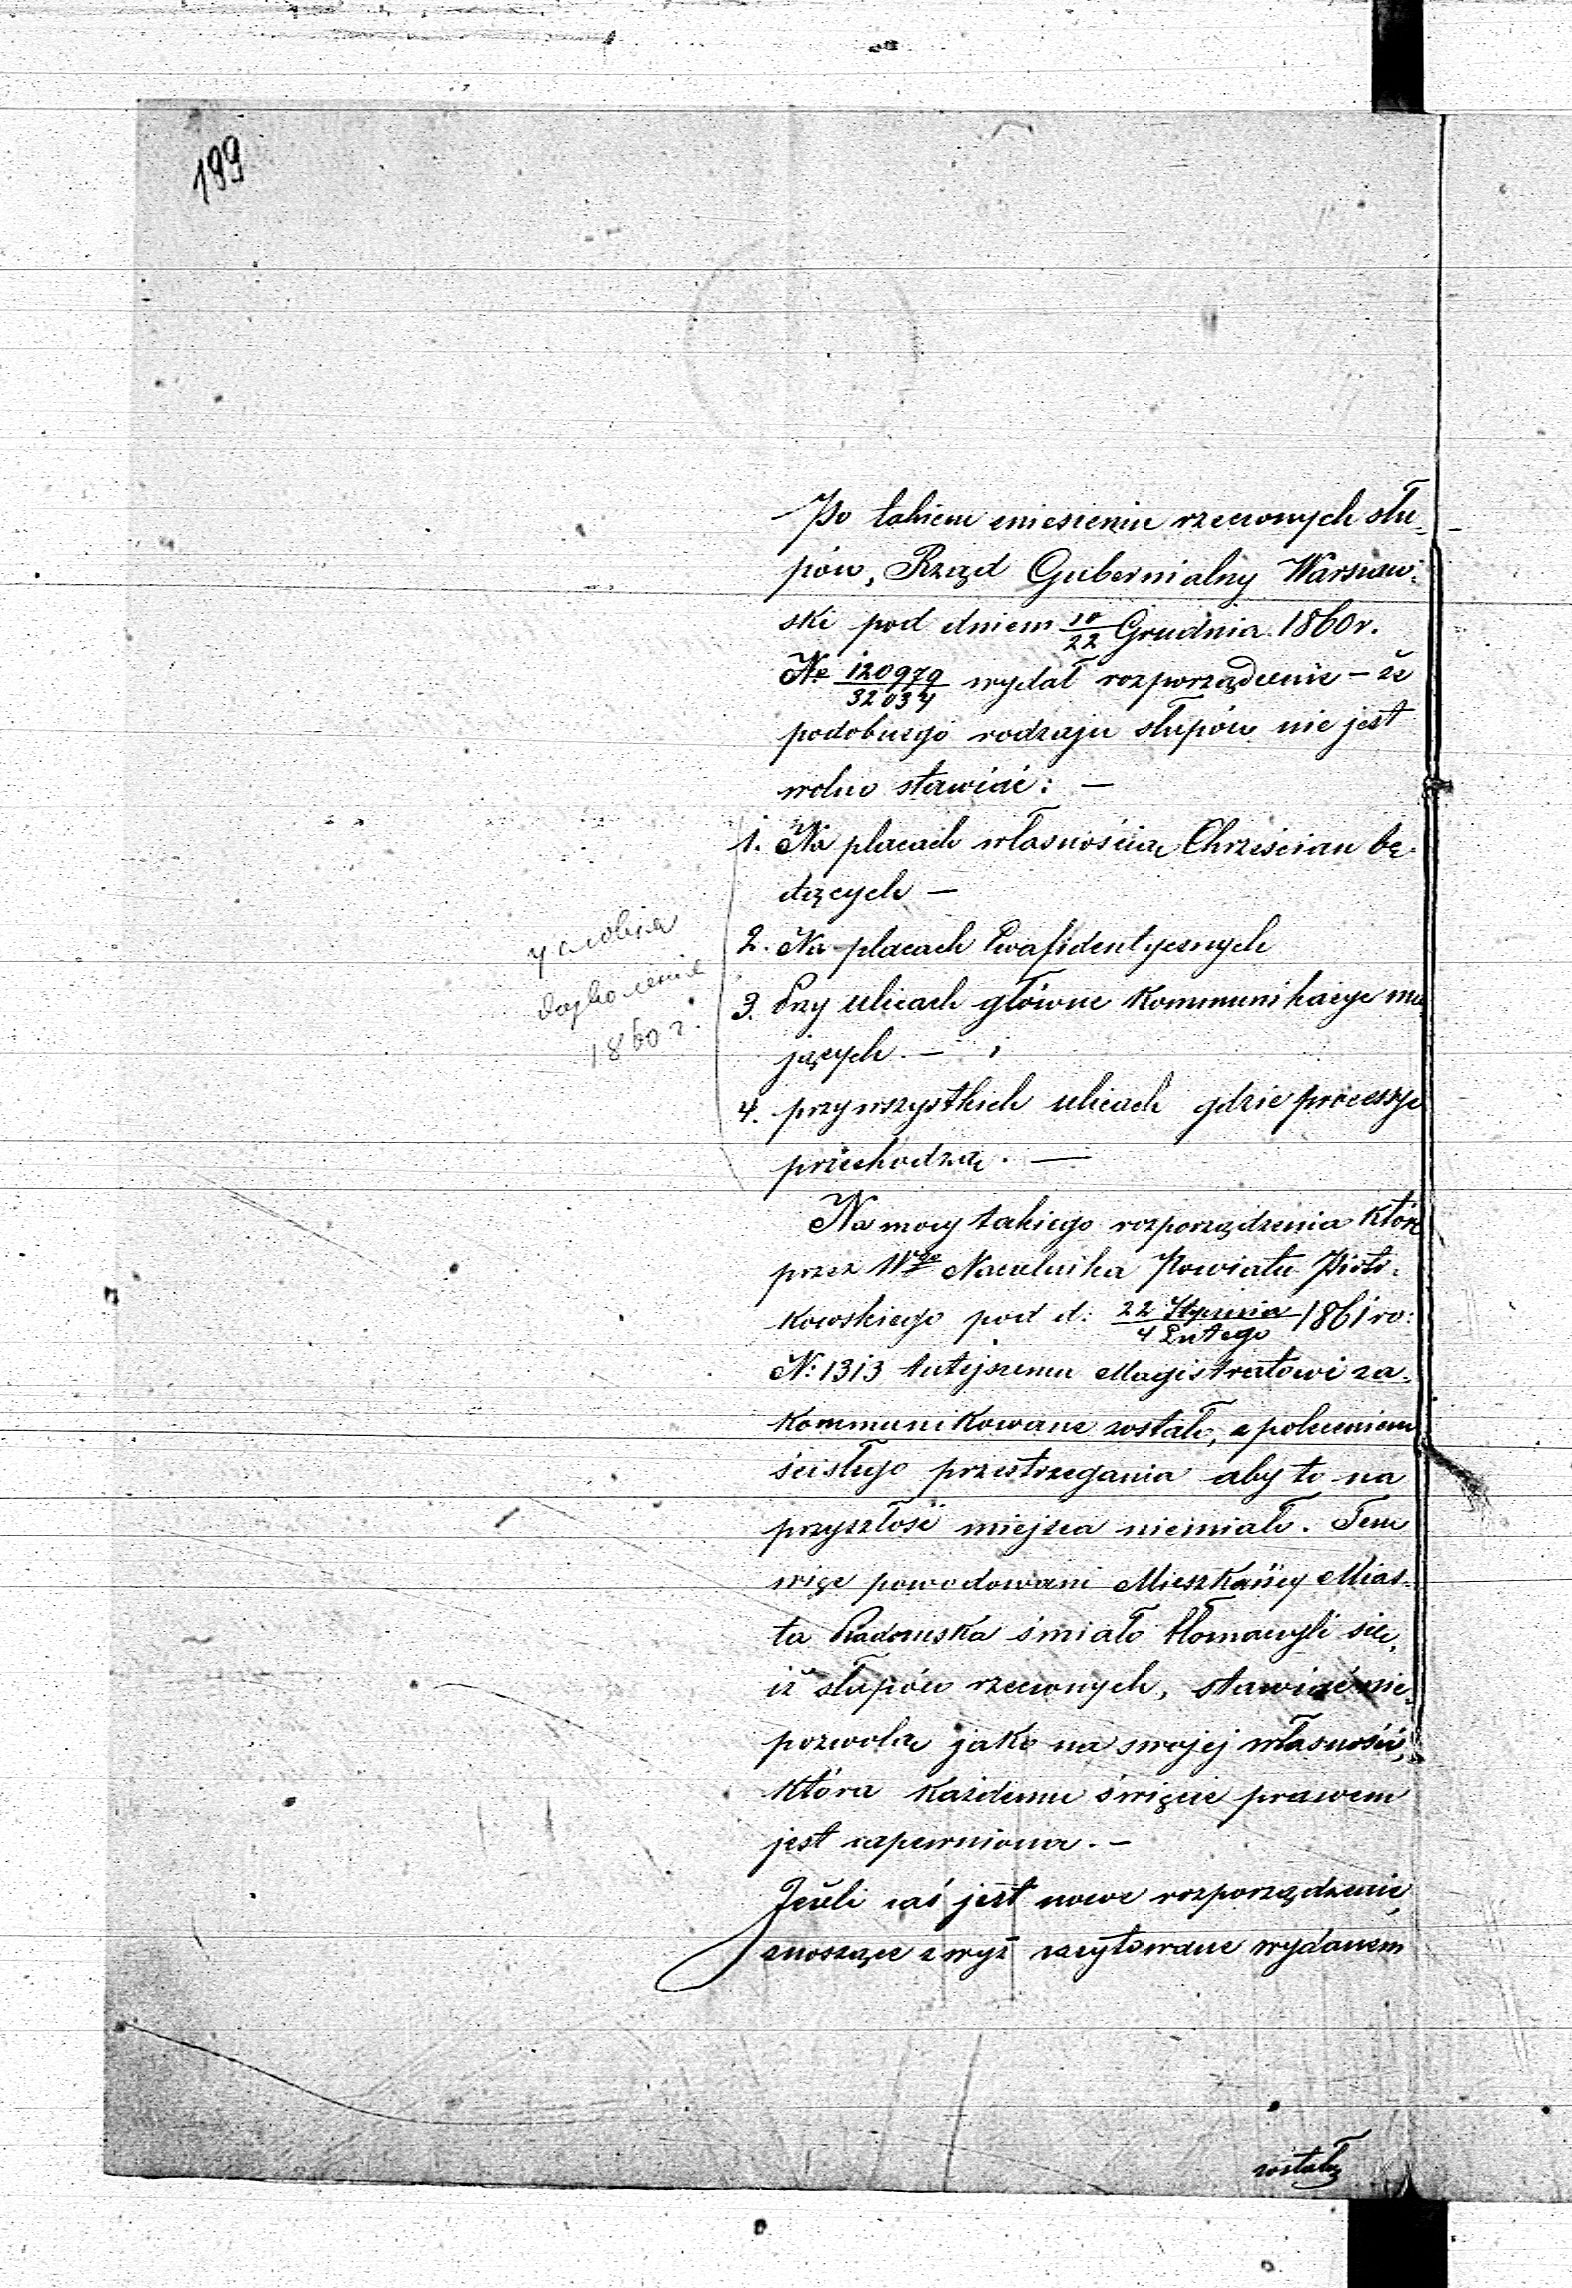 199
Po takiem zniesieniu rzeczonych słu-
pów, Rząd Gubernialny Warszaw-
ski pod dniem 10/22 Grudnia 1860 r.
No 120979/32034 wydał rozporządzenie – że
podobnego rodzaju słupów nie jest
wolno stawiać: —
1. Na placach własnością Chrześcian bę-
dących —
2. Na placach
3. Przy ulicach główne kommunikacye ma
jących. —
4. przy wszystkich ulicach gdzie processye
przechodzą. —
условия
дозволения
1860 г.
Na mocy takiego rozporządzenia które
przez Wgo Naczelnika Powiatu Piotr-
kowskiego pod d: 22 Stycznia/4 Lutego 1861 ro:
N: 1313 tutejszemu Magistratowi za-
kommunikowane zostało, z poleceniem
ścisłego przestrzegania aby to na
przyszłość miejsca niemiało. Tem
więc powodowani Mieszkańcy Mias-
ta Radomska śmiało tłomaczyli się,
iż słupów rzeczonych, stawiać nie
pozwolą jako na swojej własności,
która każdemu święcie prawem
jest zapewniona. —
Jeżeli zaś jest nowe rozporządzenie,
znoszące zwyż zacytowane wydanem
zostały